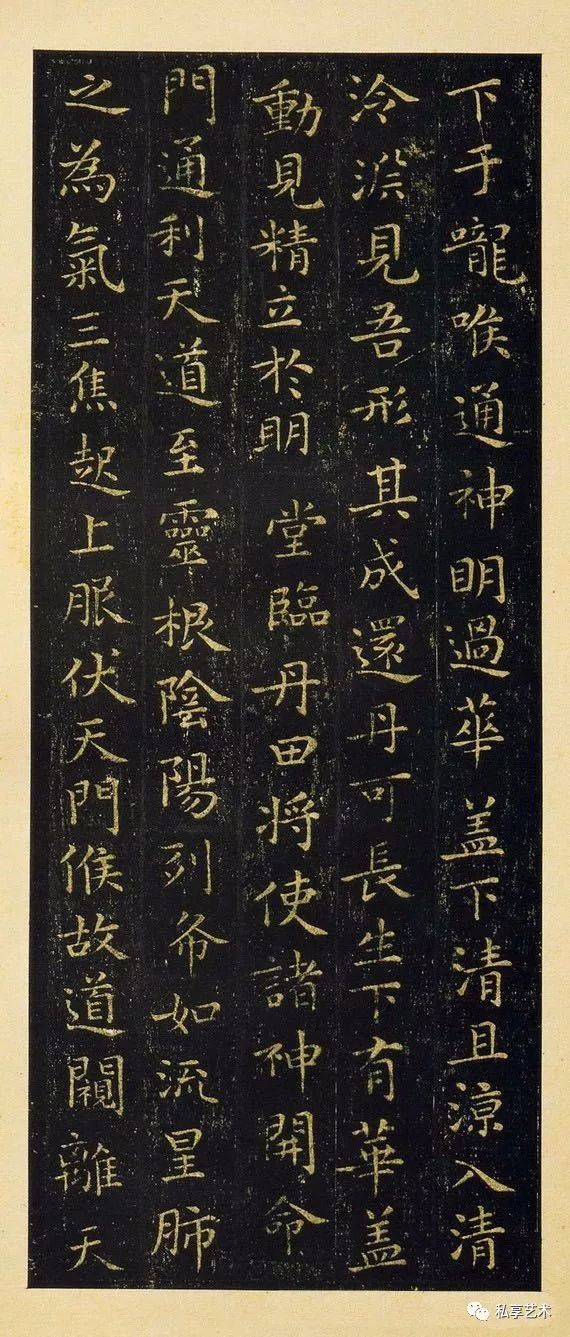 下于嚨喉通神明過華盖下清且涼入清
泠淵見吾形其成還丹可長生下有華盖
動見精立於明堂臨丹田将使諸神開命
門通利天道至靈根陰陽列布如流星肺
之為氣三焦起上服伏天門候故道闚離天
私享艺术